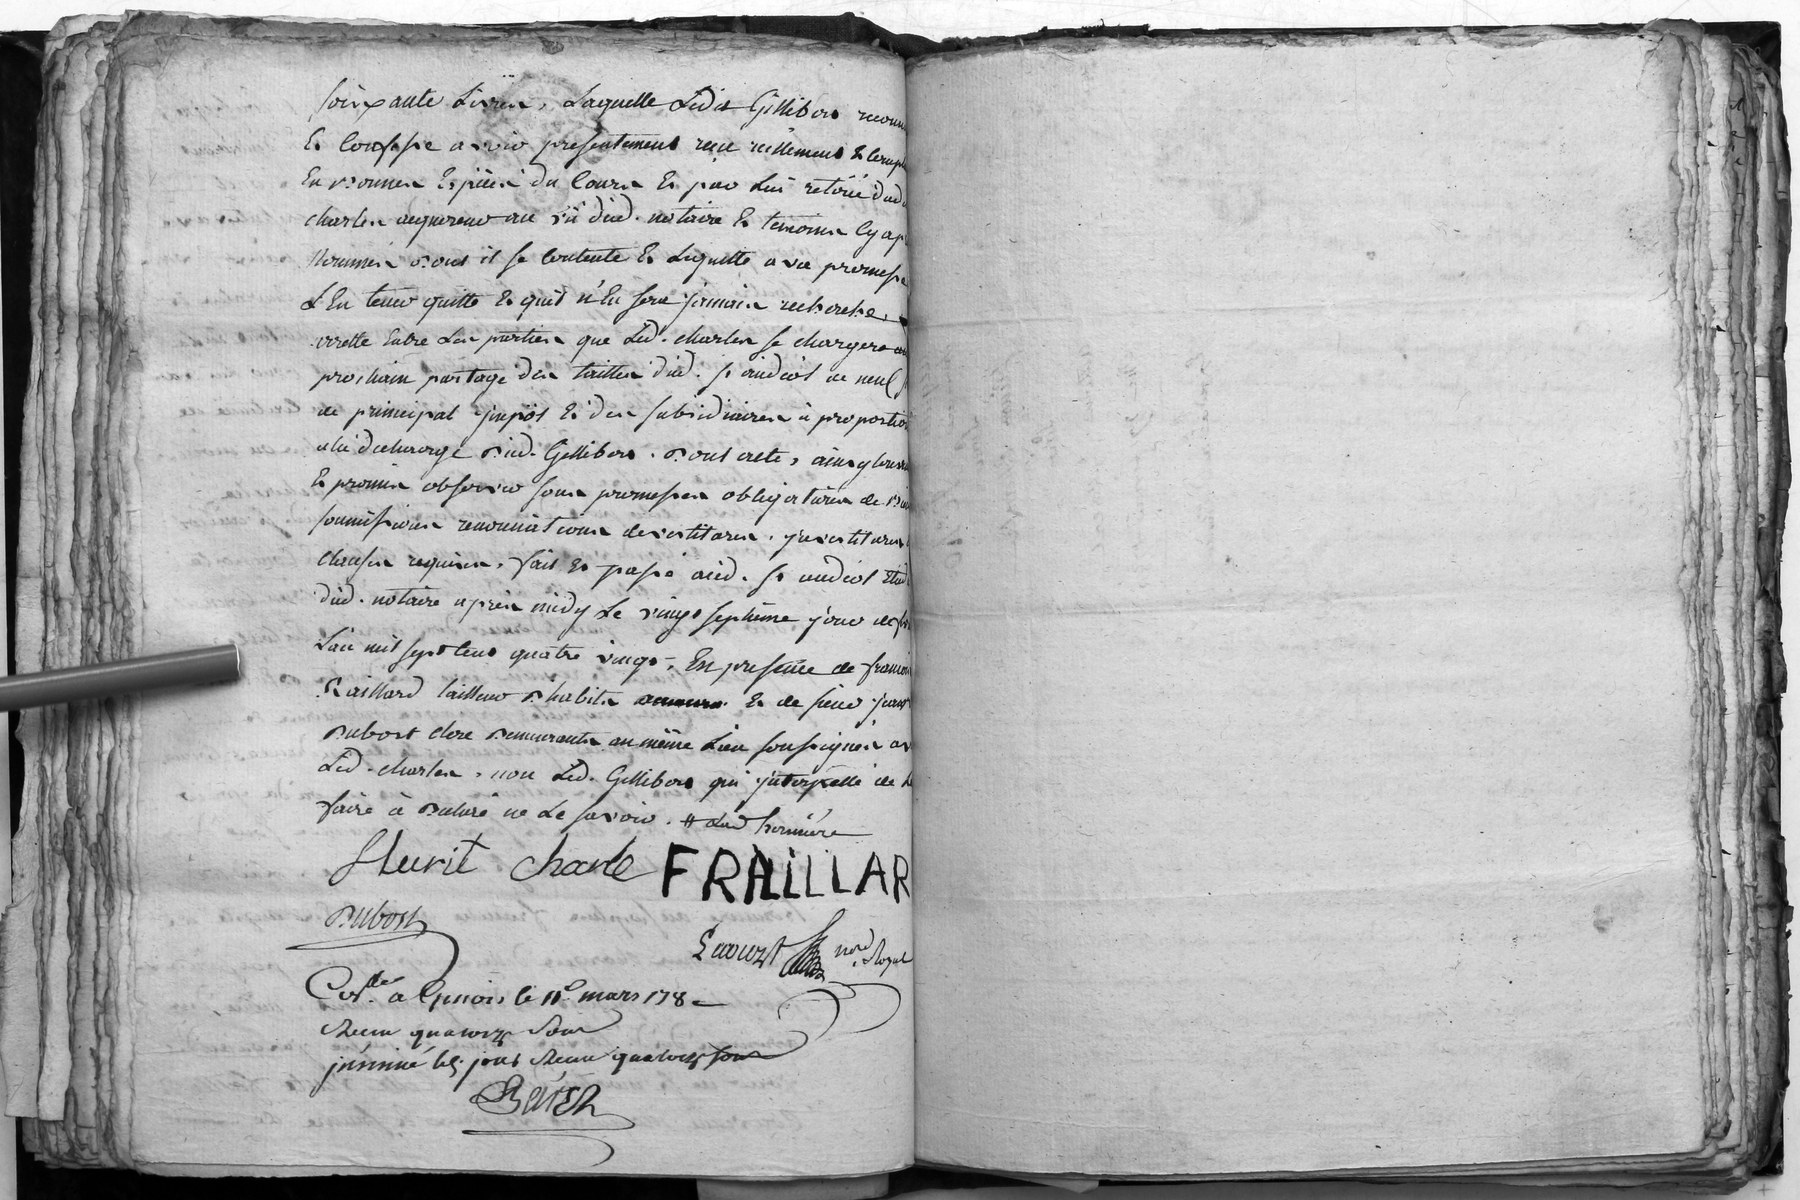 soixante Livres, Laquelle Ledit Gillibert reconn
Et Confesse avoir presentement reçu réellement & Compt
En bonnes Espèces du Cours Et par Lui retiré dud
charles acquereur au vû dud. notaire Et temoins Cy ap
Nommés dont il se Contente Et Liquitte avec promesse
L'En tenir quitte Et qu'il n'En sera jamais recherché,
arrette Entre Les parties que Led. charles se chargera au
prochain partage des tailles dud. St andéol de neuf s
de principal Impôt Et des subsidiaires à proportio
a la decharge dud. Gillibert. dont acte, ainsy
Et promis observer sous promesses obligations de
soumissions renonciations devestitures. Investitures
clauses requises. fait Et passé aud. St andéol Etud
dud. notaire après midy Le vingt septième jour de
L'an mil sept Cent quatre vingt, En presence de françois
Raillard tailleur d'habits Et de sieur
Dubost clerc Demeurants au même Lieu soussignés av
Led. charles, non Led. Gillibert qui Interpellé de Le
faire à Declaré ne Le savoir. #
Fleurit charle FRAILLAR
Dubost
nore Royal
Collé a le 11e mars 178
Reçu quatorze sous
jnsinué les. jour Reçu quatorze sous